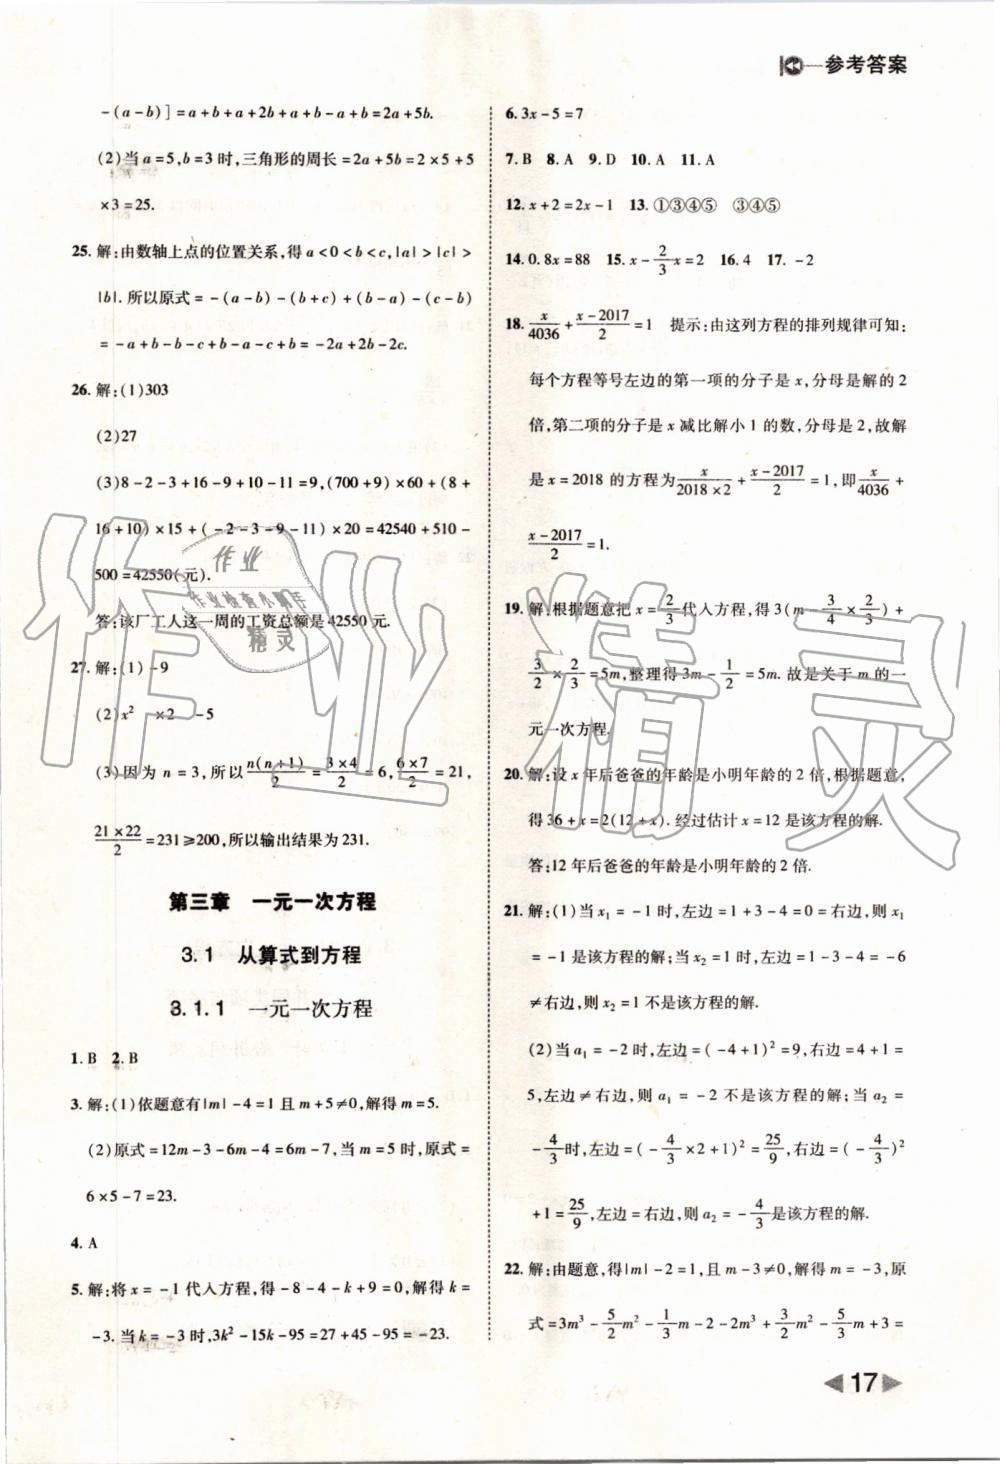 参考答案
-(a-b)]=a+b+a+2b+a+b-a+b=2a+5b.
(2)当a=5,b=3时,三角形的周长=2a+5b=2×5+5
×3=25.
25. 解:由数轴上点的位置关系,得a<0<b<c,|a|>|c|>
|b|.所以原式=-(a-b)-(b+c)+(b-a)-(c-b)
=-a+b-b-c+b-a-c+b=-2a+2b-2c.
26. 解:(1)303
(2)27
(3)8-2-3+16-9+10-11=9,(700+9)×60+(8+
16+10)×15+(-2-3-9-11)×20=42540+510-
500=42550(元).
答:该厂工人这一周的工资总额是42550元.
27. 解:(1)-9
(2)x² ×2 -5
(3)因为n=3,所以n(n+1)/2=3×4/2=6,6×7/2=21,
21×22/2=231≥200,所以输出结果为231.
第三章 一元一次方程
3.1 从算式到方程
3.1.1 一元一次方程
1. B 2. B
3. 解:(1)依题意有|m|-4=1且m+5≠0,解得m=5.
(2)原式=12m-3-6m-4=6m-7,当m=5时,原式=
6×5-7=23.
4. A
5. 解:将x=-1代入方程,得-8-4-k+9=0,解得k=
-3.当k=-3时,3k²-15k-95=27+45-95=-23.
6. 3x-5=7
7. B 8. A 9. D 10. A 11. A
12. x+2=2x-1 13. ①③④⑤ ③④⑤
14. 0.8x=88 15. x-2/3x=2 16. 4 17. -2
18. x/4036+(x-2017)/2=1 提示:由这列方程的排列规律可知:
每个方程等号左边的第一项的分子是x,分母是解的2
倍,第二项的分子是x减比解小1的数,分母是2,故解
是x=2018的方程为x/(2018×2)+(x-2017)/2=1,即x/4036+
(x-2017)/2=1.
19. 解:根据题意把x=2/3代入方程,得3(m-3/4×2/3)+
3/2×2/3=5m,整理得3m-1/2=5m.故是关于m的一
元一次方程.
20. 解:设x年后爸爸的年龄是小明年龄的2倍,根据题意,
得36+x=2(12+x).经过估计x=12是该方程的解.
答:12年后爸爸的年龄是小明年龄的2倍.
21. 解:(1)当x₁=-1时,左边=1+3-4=0=右边,则x₁
=-1是该方程的解;当x₂=1时,左边=1-3-4=-6
≠右边,则x₂=1不是该方程的解.
(2)当a₁=-2时,左边=(-4+1)²=9,右边=4+1=
5,左边≠右边,则a₁=-2不是该方程的解;当a₂=
-4/3时,左边=(-4/3×2+1)²=25/9,右边=(-4/3)²
+1=25/9,左边=右边,则a₂=-4/3是该方程的解.
22. 解:由题意,得|m|-2=1,且m-3≠0,解得m=-3,原
式=3m³-5/2m²-1/3m-2-2m³+3/2m²-5/3m+3=
17
作业精灵
作业
作业检查小助手
精灵